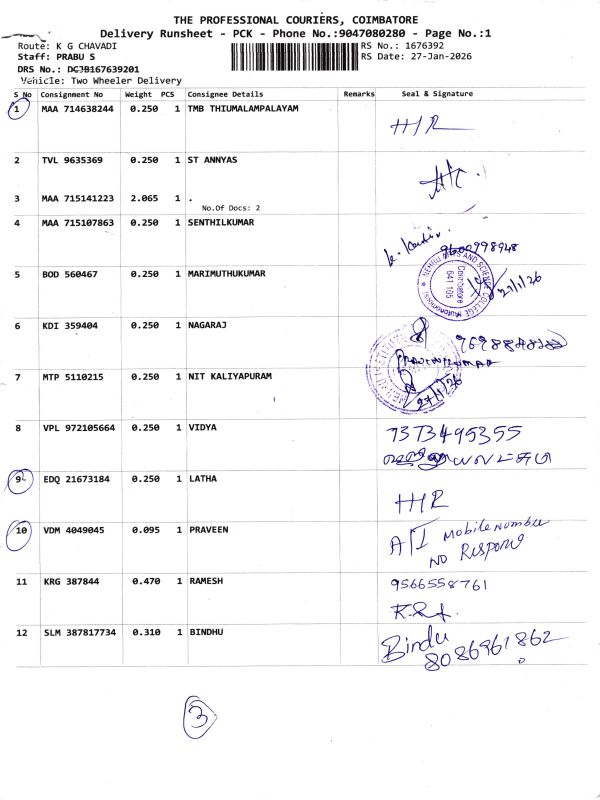 THE PROFESSIONAL COURIERS, COIMBATORE
Delivery Runsheet - PCK - Phone No.:9047080280 - Page No.:1
Route: K G CHAVADI
RS No.: 1676392
Staff: PRABU S
RS Date: 27-Jan-2026
DRS No.: DCJB167639201
Vehicle: Two Wheeler Delivery
S No Consignment No Weight PCS Consignee Details Remarks Seal & Signature
1 MAA 714638244 0.250 1 TMB THIUMALAMPALAYAM
2 TVL 9635369 0.250 1 ST ANNYAS
3 MAA 715141223 2.065 1 .
No.Of Docs: 2
4 MAA 715107863 0.250 1 SENTHILKUMAR
9600998948
5 BOD 560467 0.250 1 MARIMUTHUKUMAR
NEHRU ARTS AND SCIENCE COLLEGE (Autonomous)
Coimbatore
641 105
27/1/26
6 KDI 359404 0.250 1 NAGARAJ
7 MTP 5110215 0.250 1 NIT KALIYAPURAM
27/1/26
8 VPL 972105664 0.250 1 VIDYA 7373495355
9 EDQ 21673184 0.250 1 LATHA
10 VDM 4049045 0.095 1 PRAVEEN
Mobile number
NO Respons
11 KRG 387844 0.470 1 RAMESH 9566558761
12 SLM 387817734 0.310 1 BINDHU Bindu
8086961862
3